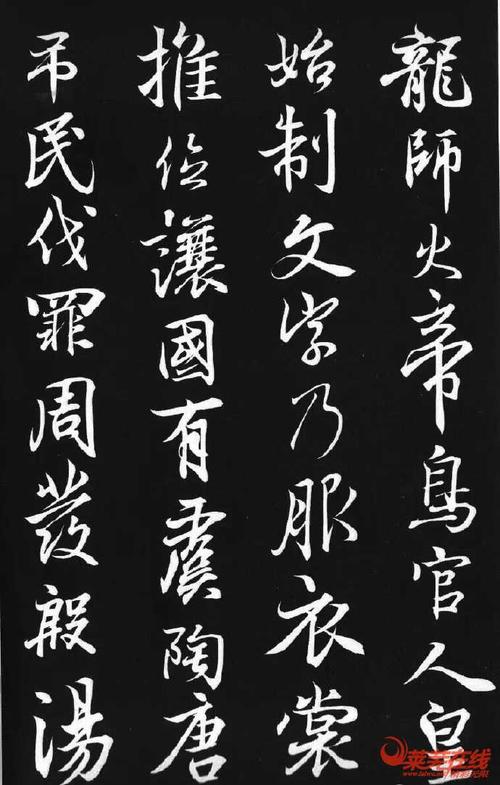 龍師火帝鳥官人皇
始制文字乃服衣裳
推位讓國有虞陶唐
弔民伐罪周发殷湯
莱芜在线